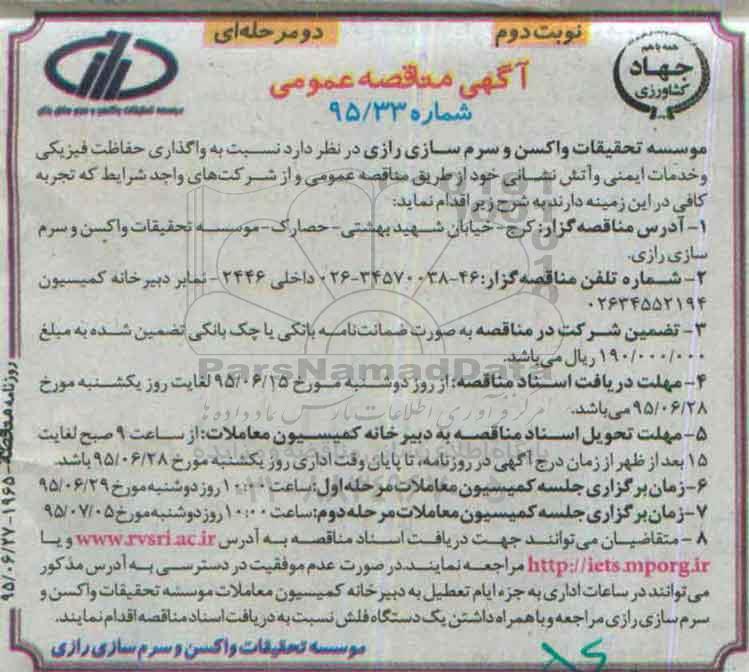 نوبت دوم
دو مرحله‌ای
همه با هم
جهاد
کشاورزی
موسسه تحقیقات واکسن و سرم سازی رازی
آگهی مناقصه عمومی
شماره ۹۵/۳۳
موسسه تحقیقات واکسن و سرم سازی رازی در نظر دارد نسبت به واگذاری حفاظت فیزیکی
و خدمات ایمنی و آتش نشانی خود از طریق مناقصه عمومی و از شرکت‌های واجد شرایط که تجربه
کافی در این زمینه دارند به شرح زیر اقدام نماید:
۱- آدرس مناقصه گزار: کرج- خیابان شهید بهشتی- حصارک- موسسه تحقیقات واکسن و سرم
سازی رازی.
۲- شماره تلفن مناقصه گزار: ۴۶-۳۴۵۷۰۰۳۸-۰۲۶ داخلی ۲۴۴۶ - نمابر دبیرخانه کمیسیون
۰۲۶۳۴۵۵۲۱۹۴
۳- تضمین شرکت در مناقصه به صورت ضمانت‌نامه بانکی یا چک بانکی تضمین شده به مبلغ
۱۹۰/۰۰۰/۰۰۰ ریال می‌باشد.
ParsNamadData
۴- مهلت دریافت اسناد مناقصه: از روز دوشنبه مورخ ۹۵/۰۶/۱۵ لغایت روز یکشنبه مورخ
۹۵/۰۶/۲۸ می‌باشد.
مرکز فرآوری اطلاعات پارس نماد داده ها
۵- مهلت تحویل اسناد مناقصه به دبیرخانه کمیسیون معاملات: از ساعت ۹ صبح لغایت
۱۵ بعد از ظهر از زمان درج آگهی در روزنامه، تا پایان وقت اداری روز یکشنبه مورخ ۹۵/۰۶/۲۸ باشد.
۶- زمان برگزاری جلسه کمیسیون معاملات مرحله اول: ساعت ۱۰:۰۰ روز دوشنبه مورخ ۹۵/۰۶/۲۹
۷- زمان برگزاری جلسه کمیسیون معاملات مرحله دوم: ساعت ۱۰:۰۰ روز دوشنبه مورخ ۹۵/۰۷/۰۵
۸- متقاضیان می‌توانند جهت دریافت اسناد مناقصه به آدرس www.rvsri.ac.ir و یا
http://iets.mporg.ir مراجعه نمایند. در صورت عدم موفقیت در دسترسی به آدرس مذکور
می‌توانند در ساعات اداری به جزء ایام تعطیل به دبیرخانه کمیسیون معاملات موسسه تحقیقات واکسن و
سرم سازی رازی مراجعه و با همراه داشتن یک دستگاه فلش نسبت به دریافت اسناد مناقصه اقدام نمایند.
موسسه تحقیقات واکسن و سرم سازی رازی
روزنامه مناقصه - ۱۹۶۵ - ۹۵/۰۶/۲۷